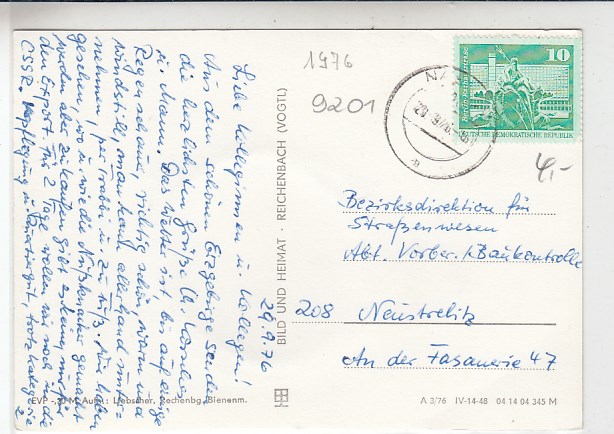 Liebe Kolleginnen u. Kollegen!
Aus dem schönen Erzgebirge senden
die herzlichsten Grüße
u. Mann. Das Wetter ist bis auf einige
Regenschauer, richtig schön, warm und
windstill, man kann allerhand unter-
nehmen, per Trabbi u. zu Fuß. Wir haben
gesehen, wo u. wie die Nußknacker gemacht
werden aber zu kaufen gibt es keine, nur für
den Export. Für 2 Tage wollen wir noch in die
CSSR. Verpflegung u. Quartier gut, trotz Kategorie
2
29.9.76
BILD UND HEIMAT · REICHENBACH (VOGTL)
EVP -,20 M Aufn.: Liebscher, Rechenbg. Bienenm.
1976
9201
10
DEUTSCHE DEMOKRATISCHE REPUBLIK
4,-
Bezirksdirektion für
Straßenwesen
Abt. Vorber. u. Baukontrolle
208 Neustrelitz
An der Fasanerie 47
A 3/76 IV-14-48 04 14 04 345 M